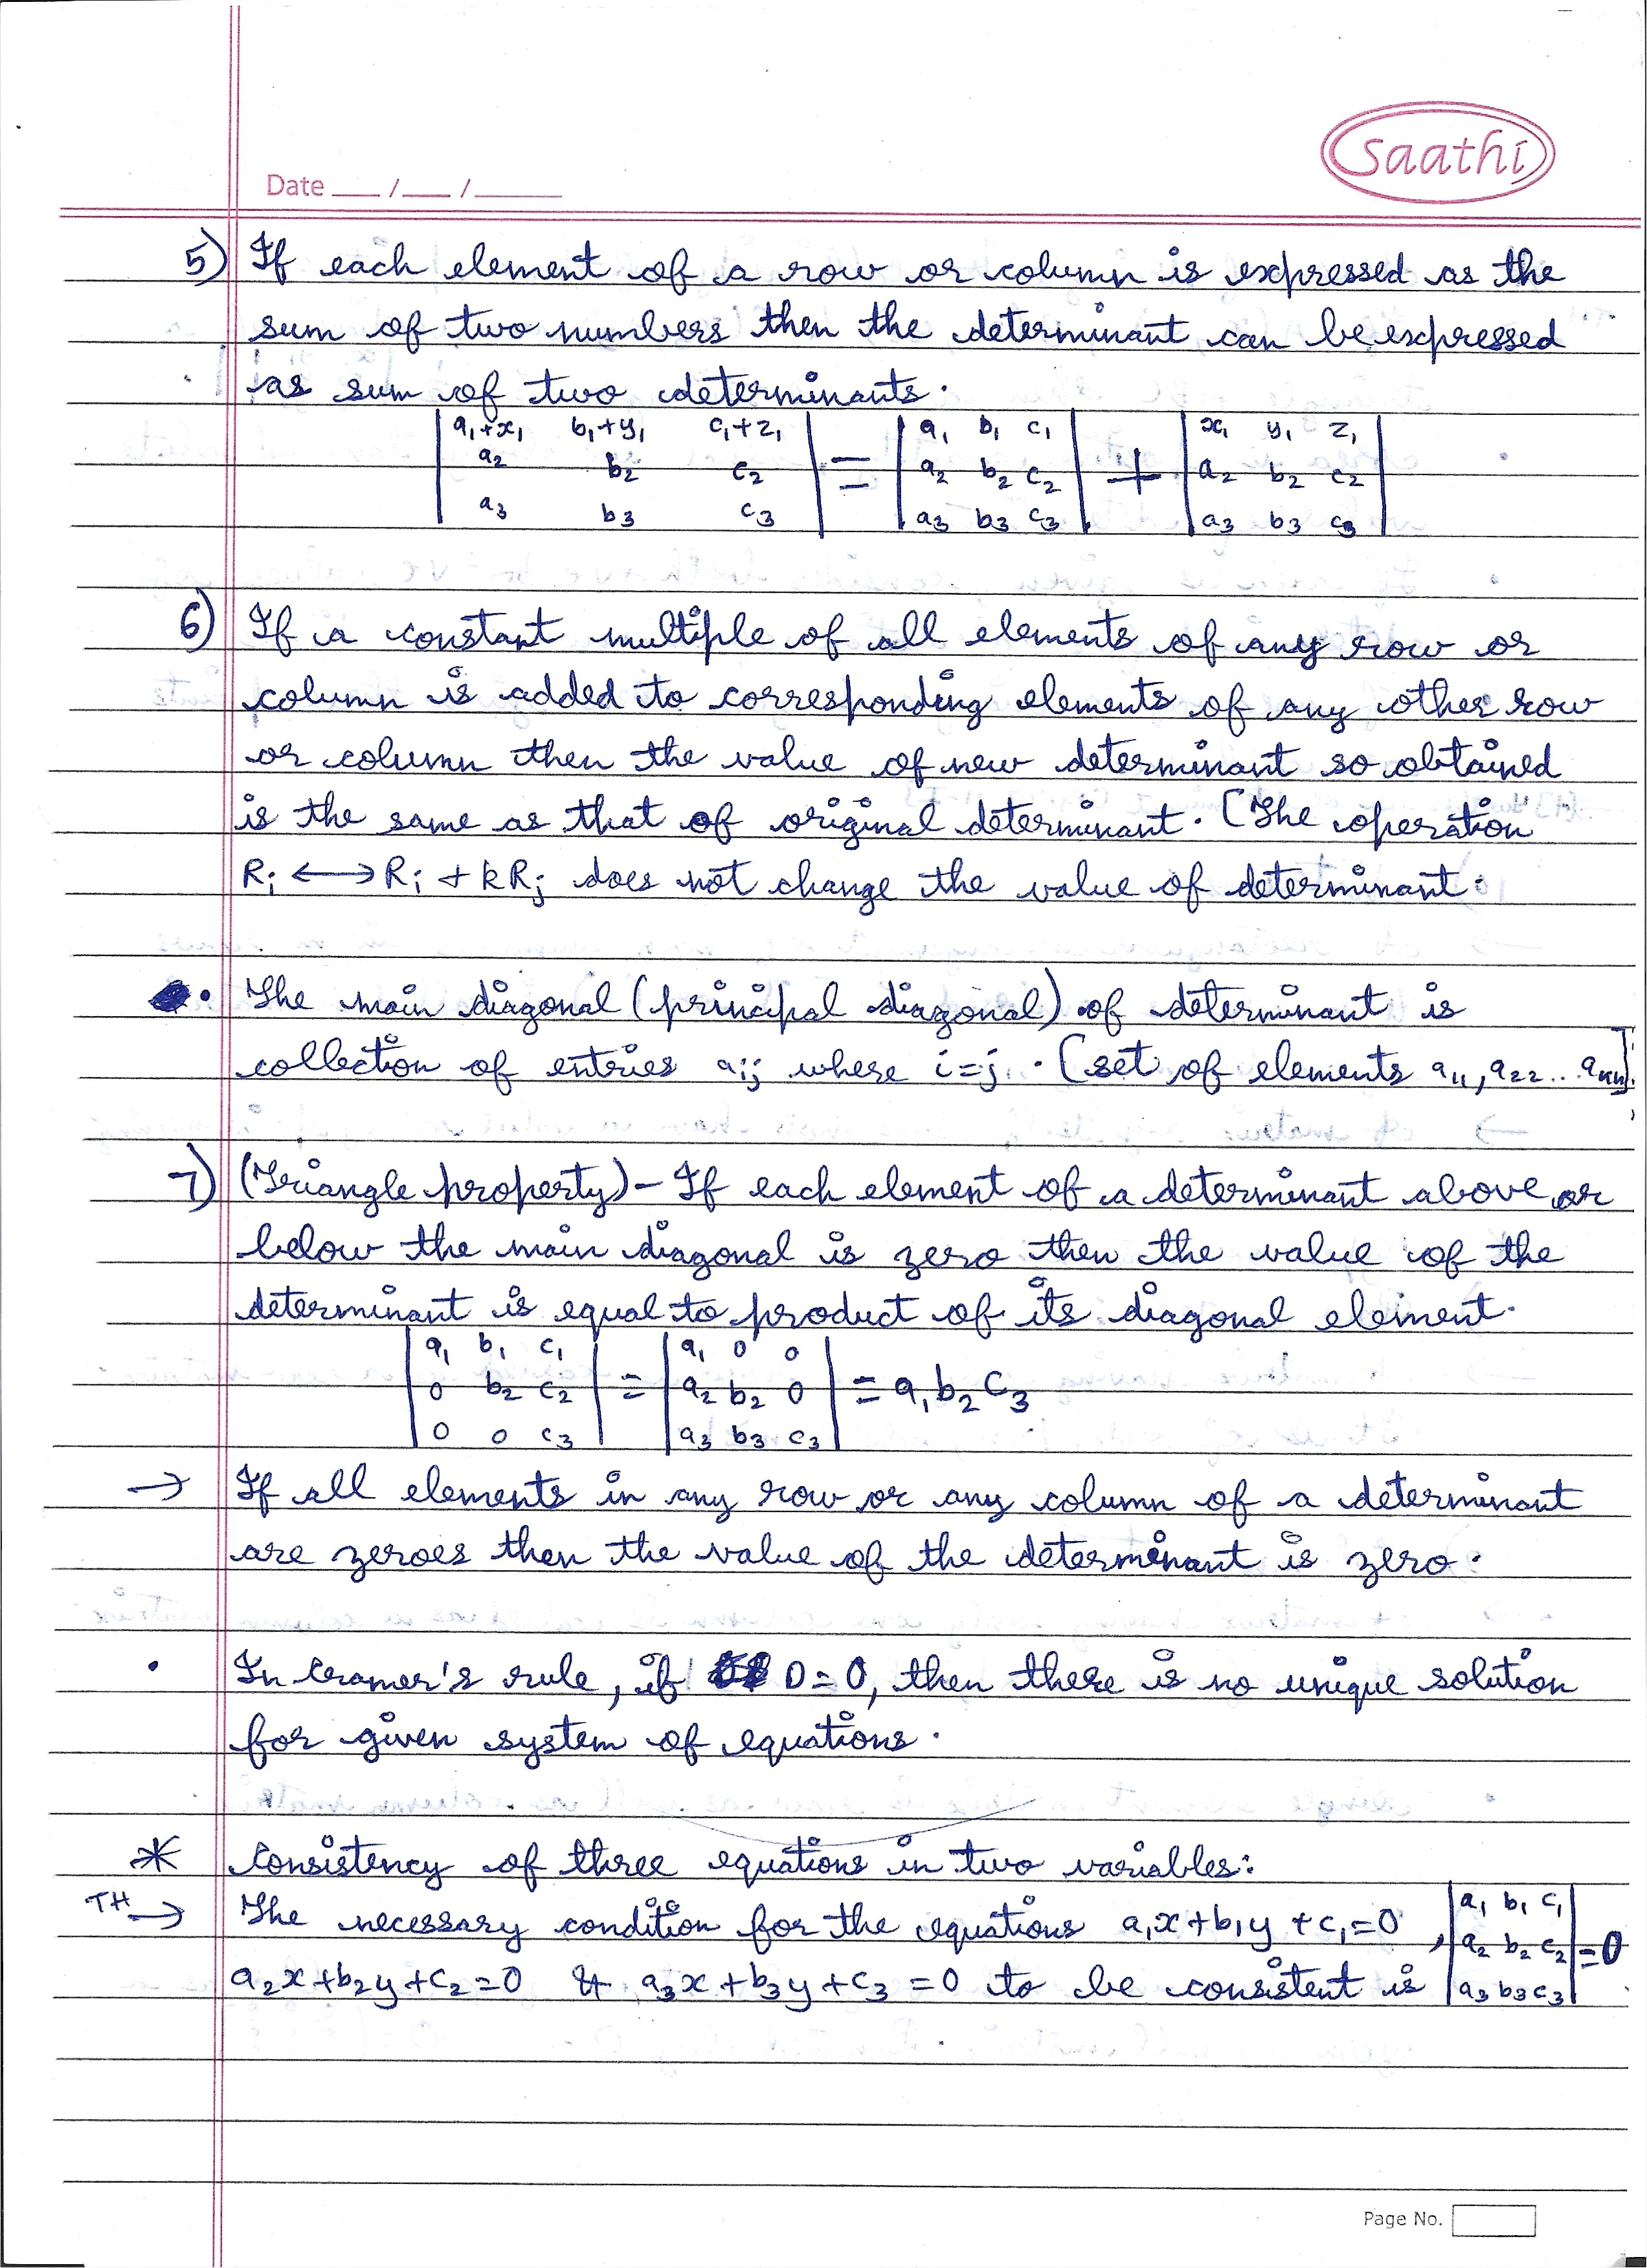 Saathi
Date ___ /___ /______
5) If each element of a row or column is expressed as the
sum of two numbers then the determinant can be expressed
as sum of two determinants.
| a₁+x₁ b₁+y₁ c₁+z₁ | | a₁ b₁ c₁ | | x₁ y₁ z₁ |
| a₂ b₂ c₂ | = | a₂ b₂ c₂ | + | a₂ b₂ c₂ |
| a₃ b₃ c₃ | | a₃ b₃ c₃ | | a₃ b₃ c₃ |
6) If a constant multiple of all elements of any row or
column is added to corresponding elements of any other row
or column then the value of new determinant so obtained
is the same as that of original determinant. [The operation
Rᵢ ⟷ Rᵢ + kRⱼ does not change the value of determinant.
• The main diagonal (principal diagonal) of determinant is
collection of entries aᵢⱼ where i=j. [set of elements a₁₁, a₂₂... aₙₙ].
7) (Triangle property) - If each element of a determinant above or
below the main diagonal is zero then the value of the
determinant is equal to product of its diagonal element.
| a₁ b₁ c₁ | | a₁ 0 0 |
| 0 b₂ c₂ | = | a₂ b₂ 0 | = a₁b₂c₃
| 0 0 c₃ | | a₃ b₃ c₃ |
→ If all elements in any row or any column of a determinant
are zeroes then the value of the determinant is zero.
• In Cramer's rule, if D=0, then there is no unique solution
for given system of equations.
* Consistency of three equations in two variables:
TH → The necessary condition for the equations a₁x+b₁y+c₁=0,
a₂x+b₂y+c₂=0 & a₃x+b₃y+c₃=0 to be consistent is
| a₁ b₁ c₁ |
| a₂ b₂ c₂ | =0
| a₃ b₃ c₃ |
Page No.